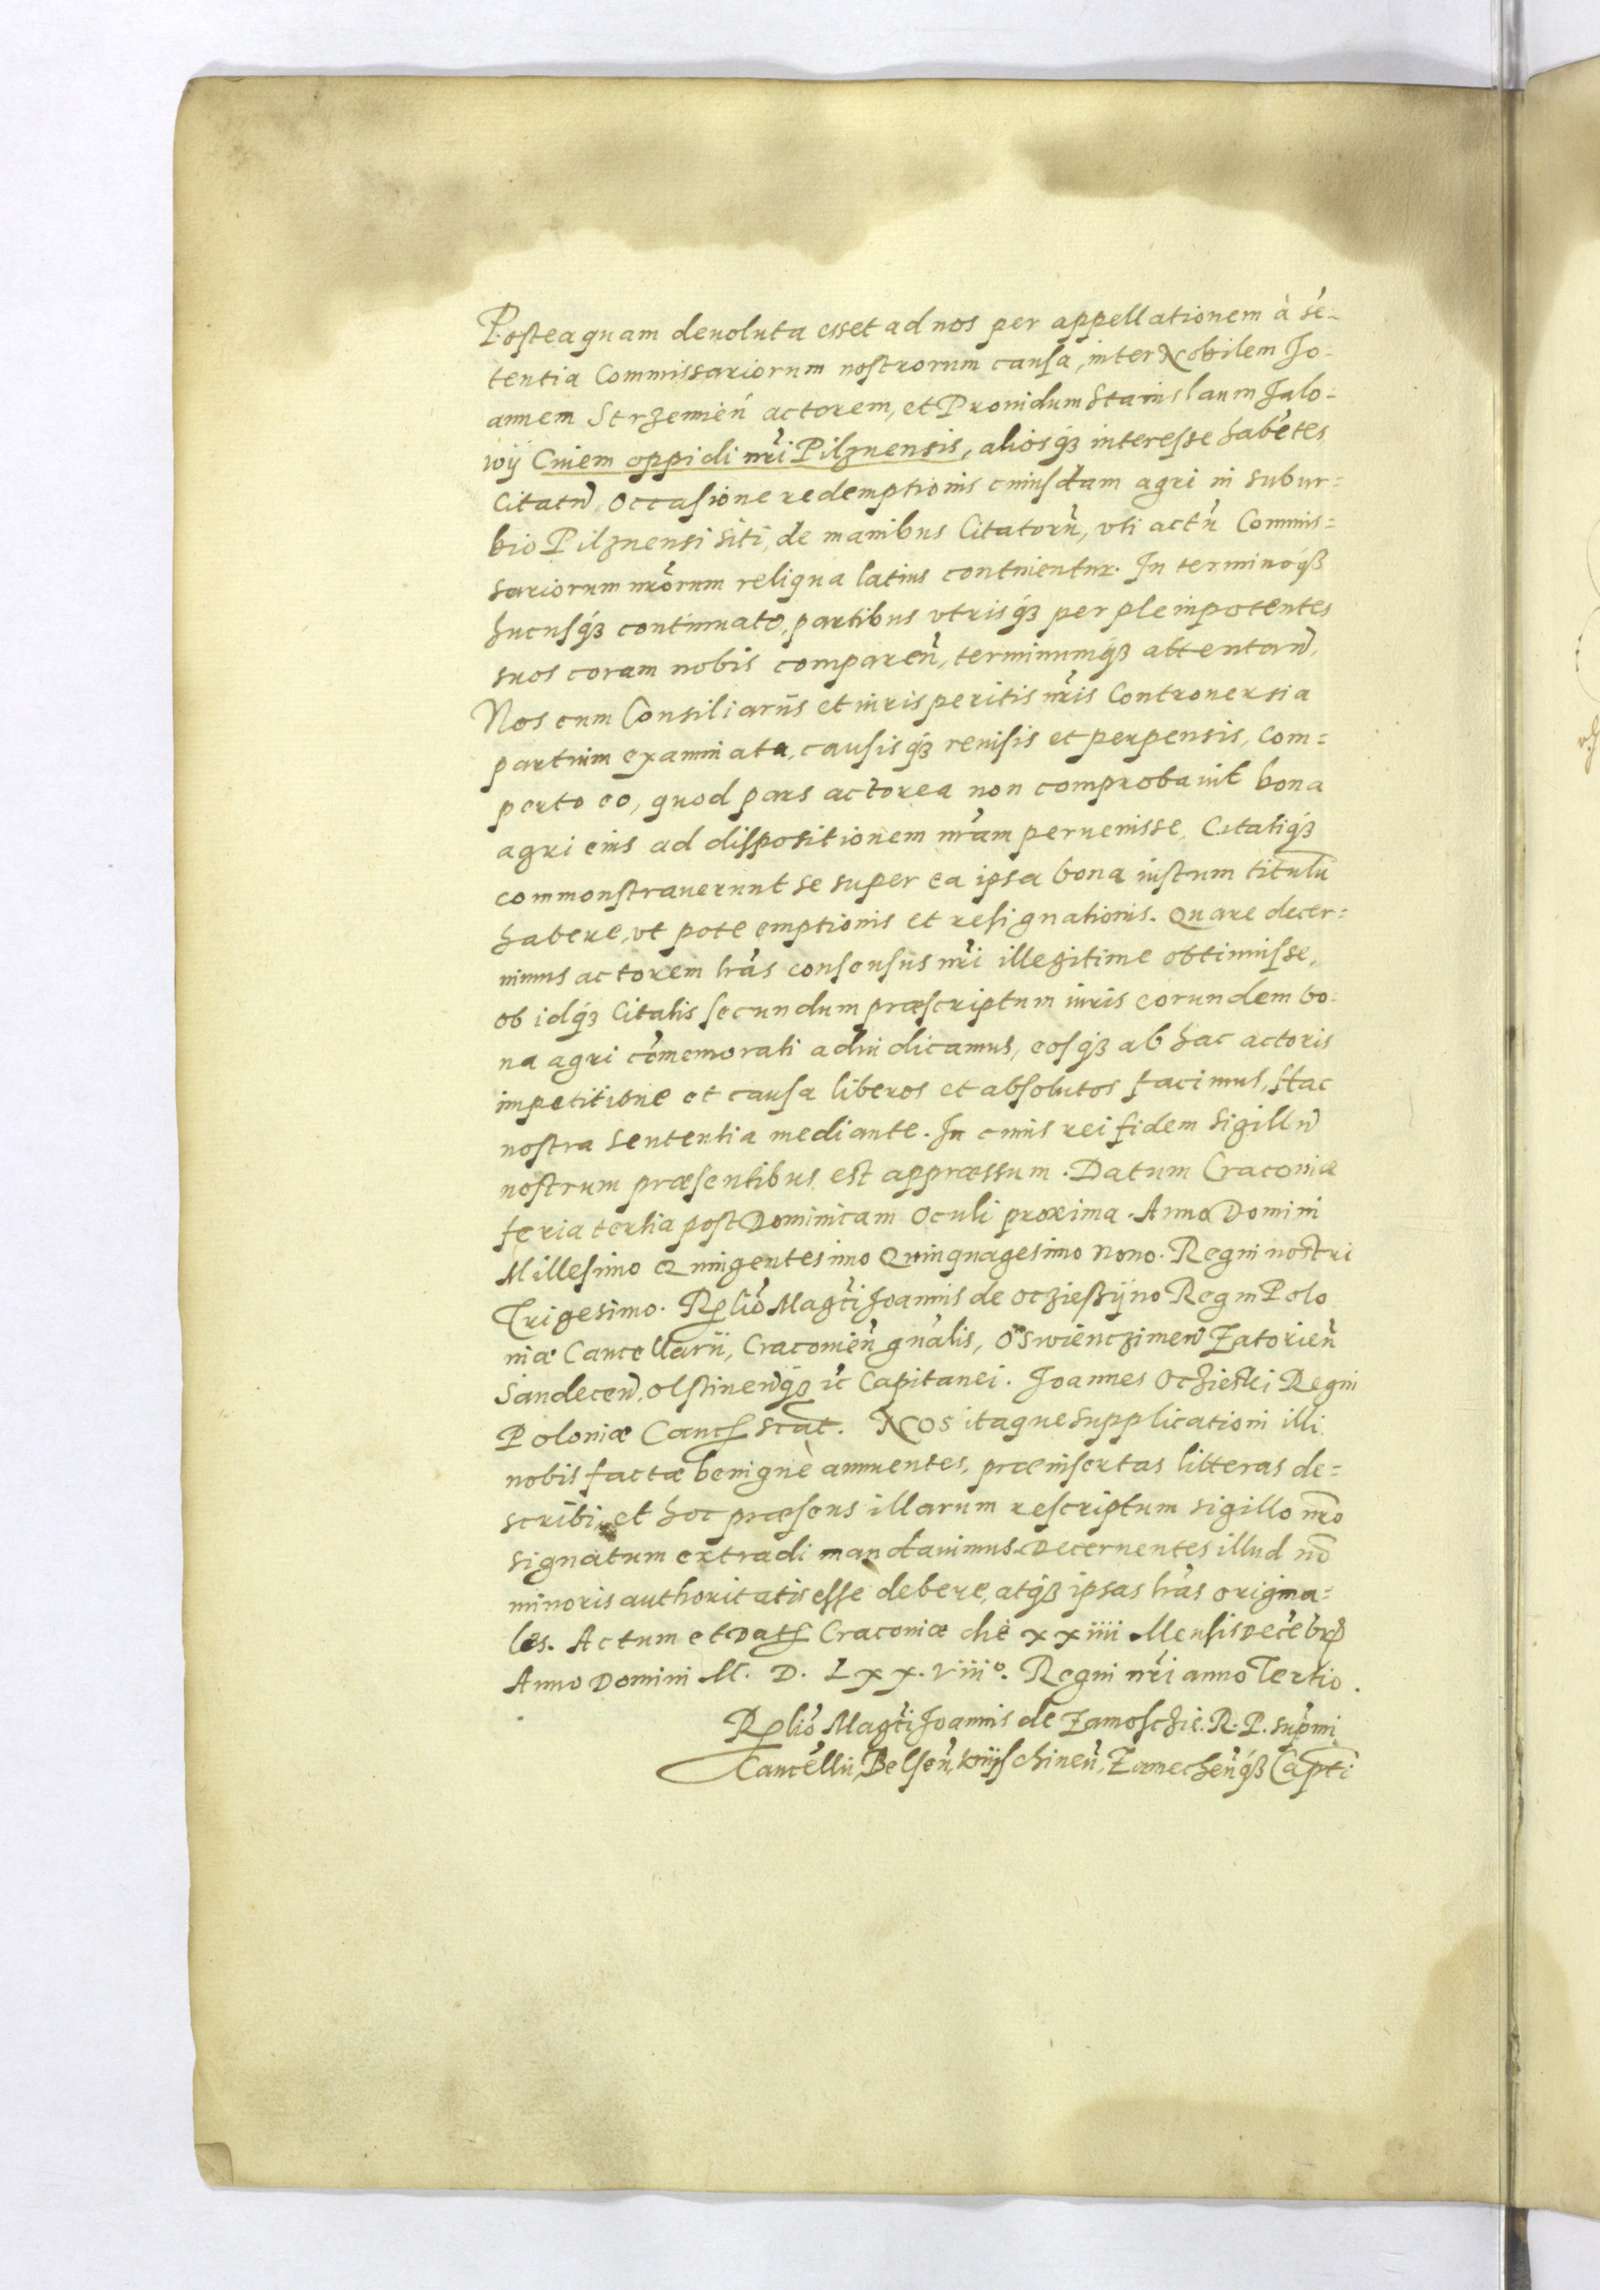 Posteaquam deuoluta esset ad nos per appellationem à sẽ-
tentia Commissariorum nostrorum causa, inter Nobilem Jo-
annem Strzemień actorem, et Prouidum Stanislaum Jalo-
wij Ciuem oppidi nr̃i Pilznensis, aliosq́ꝫ interesse habẽtes
Citatũ, Occasione redemptionis cuiusdam agri in subur-
bio Pilznensi siti, de manibus Citatorũ, vti actũ Commis-
sariorum nr̃orum reliqua latius continentur. In terminoq́ꝫ
hucusq́ꝫ continuato, partibus vtrisq́ꝫ per plenipotentes
suos coram nobis comparẽn, terminumq́ꝫ attentañ,
Nos cum Consiliariis et iurisperitis nr̃is Controuersia
partium examinata, causisq́ꝫ reuisis et perpensis, com-
perto eo, quod pars actorea non comprobauit bona
agri eius ad dispositionem nr̃am peruenisse, Citatiq́ꝫ
commonstrauerunt se super ea ipsa bona iustum titulũ
habere, vt pote emptionis et resignationis. Quare decer-
nimus actorem lr̃as consensus nr̃i illegitime obtinuisse,
ob idq́ꝫ Citatis secundum præscriptum iuris eorundem bo-
na agri cõmemorati adiudicamus, eosq́ꝫ ab hac actoris
impetitione et causa liberos et absolutos facimus, Hac
nostra sententia mediante. In cuius rei fidem sigillũ
nostrum præsentibus est appræssum. Datum Cracouiæ
feria tertia post Dominicam Oculi proxima. Anno Domini
Millesimo Quingentesimo Quinquagesimo Nono. Regni nostri
Trigesimo. Rẽlio Magc̃i Joannis de Ocziessijno Regni Polo
niæ Cancellarii, Cracouieñ gnãlis, Oswienczimeñ Zatorieñ
Sandeceñ, Olstineñq́ꝫ ꝛc Capitanei. Joannes Oczieski Regni
Poloniæ Canc̃ sc̃at. Nos itaque supplicationi illi
nobis factæ benignè annuentes, præinsertas litteras de-
scribi, et hoc præsens illarum rescriptum sigillo nr̃o
signatum extradi mandauimus. Decernentes illud nõ
minoris authoritatis esse debere, atq́ꝫ ipsas lr̃as origina-
les. Actum et Dat̃ Cracouiæ die xxiiii Mensis Decẽbrꝭ
Anno Domini M. D. Lxx. viii°. Regni nr̃i anno Tertio.
Rẽlio Magc̃i Joannis de Zamoschie. R. P. supr̃mi
Cancellii, Belseñ, Knijschineñ, Zamecheñq́ꝫ Capti